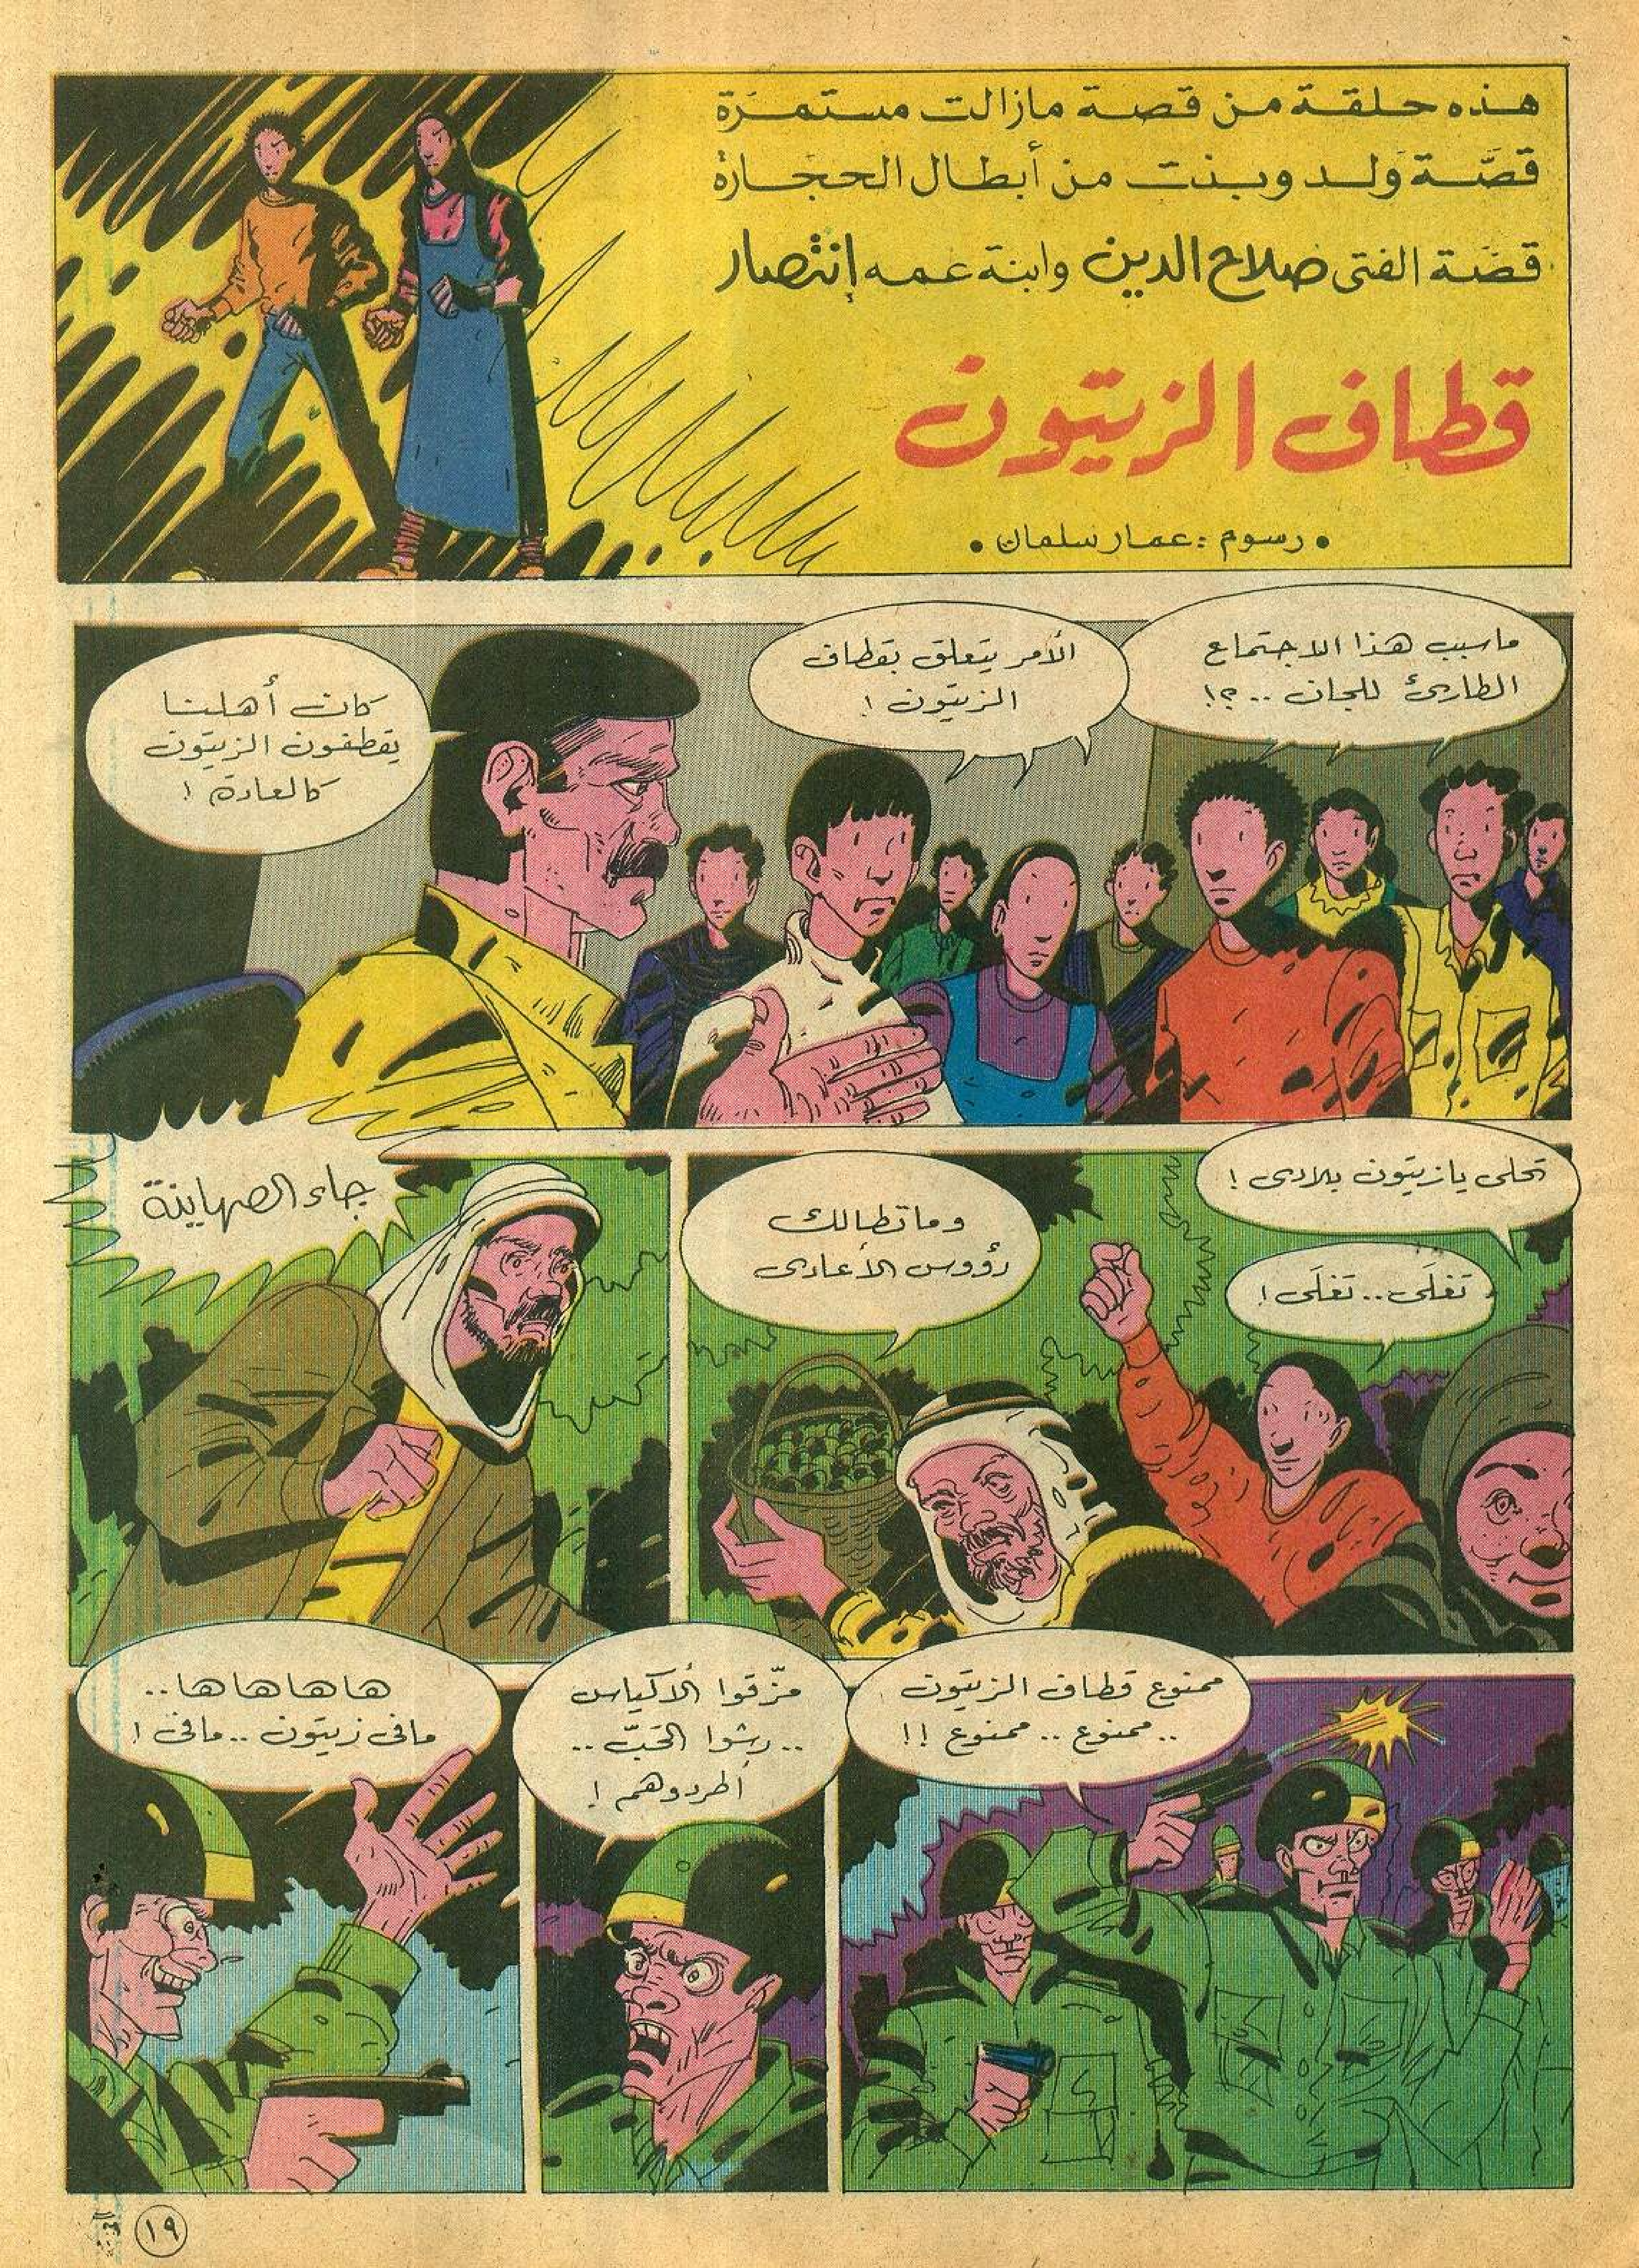 هذه حلقة من قصة مازالت مستمرّة
قصّة ولد وبنت من أبطال الحجارة
قصّة الفتى صلاح الدين وابنة عمه إنتصار
قطاف الزيتون
• رسوم : عمار سلمان •
ما سبب هذا الاجتماع
الطارئ للجان ..؟!
الأمر يتعلق بقطاف
الزيتون !
كان أهلنا
يقطفون الزيتون
كالعادة !
تحلى يا زيتون بلادى !
تغلَى .. تغلَى !
وما تطالك
رؤوس الأعادى
جاء الصهاينة
ممنوع قطاف الزيتون
.. ممنوع .. ممنوع !!
مزّقوا الأكياس
.. رشوا الحَبّ ..
أطردوهم !
ها ها ها ها ..
مافى زيتون .. مافى !
١٩